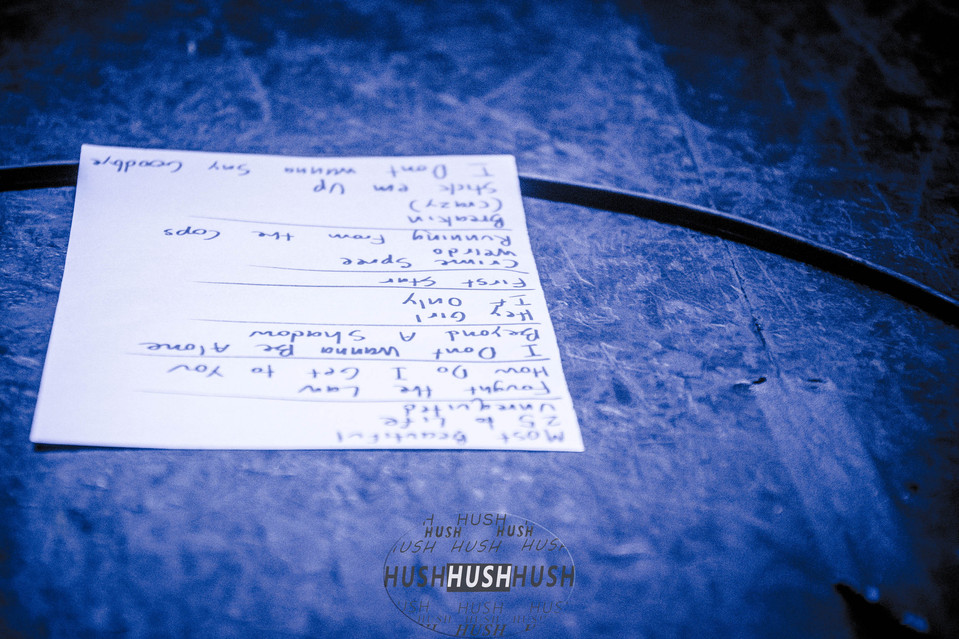 Most Beautiful
25 to Life
Unrequited
Fought the Law
How Do I Get to You
I Dont wanna Be Alone
Beyond A Shadow
Hey Girl
It Only
First Star
Crime Spree
weirdo
Running From the Cops
Breakin
(crazy)
Stick em Up
I Dont wanna Say Goodbye
HUSH
HUSH HUSH
HUSH HUSH
HUSHHUSHHUSH
HUSH
HUSH